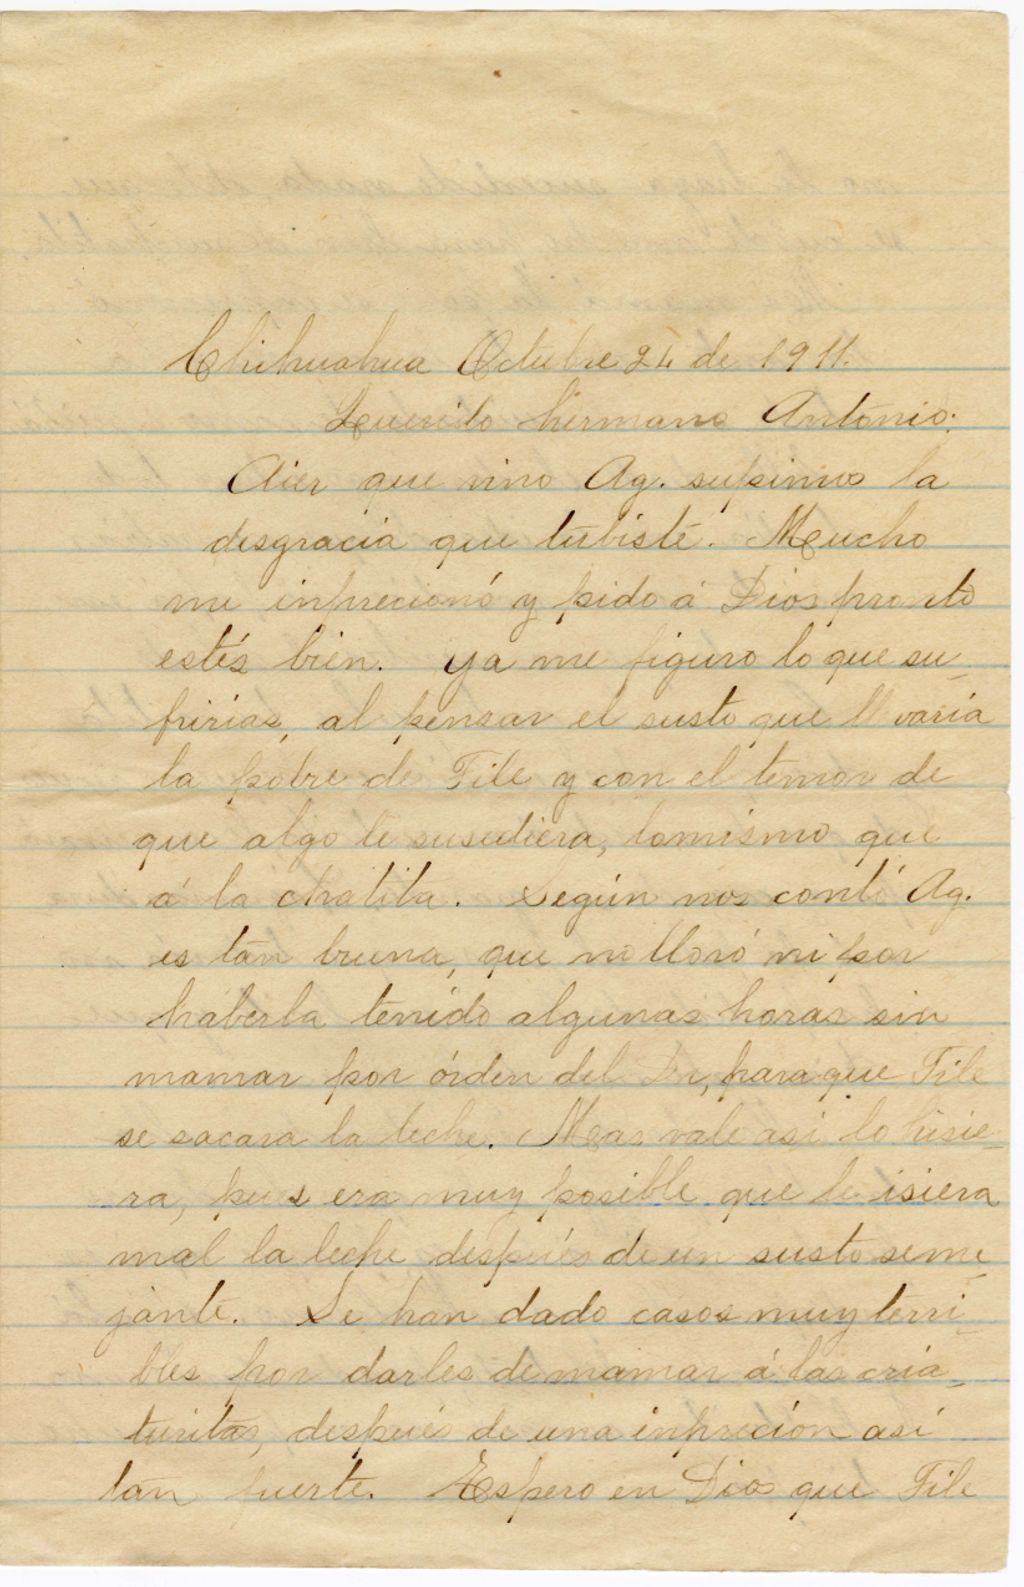 Chihuahua Octubre 24 de 1911.
Querido hermano Antonio:
Aier que vino Ag. supimos la
desgracia que tubiste. Mucho
me inprecionó y pido á Dios pronto
estés bien. Ya me figuro lo que su-
fririas, al pensar el susto que llvaria
la pobre de File y con el temor de
que algo te susediera, lomismo que
á la chatita. Según nos contó Ag.
es tan buena, que no lloró ni por
haberla tenido algunas horas sin
mamar por órden del Dr, para que File
se sacara la leche. Mas vale asi lo hisie-
ra, pues era muy posible que le isiera
mal la leche después de un susto seme-
jante. Se han dado casos muy terri-
bles por darles de mamar á las cria-
turitas, después de una inpreción así
tan fuerte. Espero en Dios que File